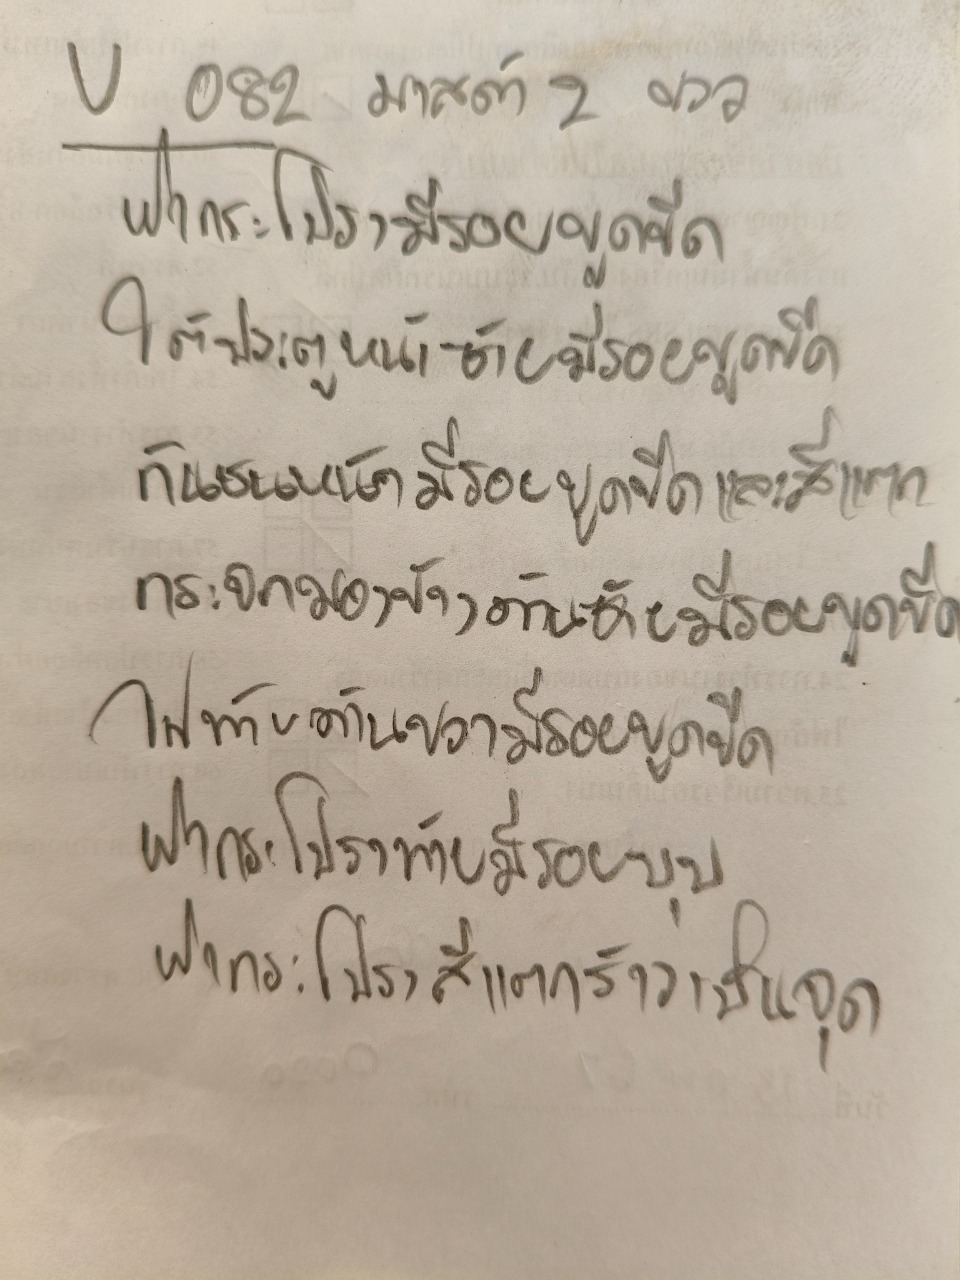 U 082 มาสด้า 2 ขาว
ฝากระโปรงมีรอยขูดขีด
ใต้ประตูหน้าซ้ายมีรอยขูดขีด
กันชนหน้ามีรอยขูดขีดและสีแตก
กระจกมองข้างด้านซ้ายมีรอยขูดขีด
ไฟท้ายด้านขวามีรอยขูดขีด
ฝากระโปรงท้ายมีรอยบุบ
ฝากระโปรงสีแตกร้าวเป็นจุด